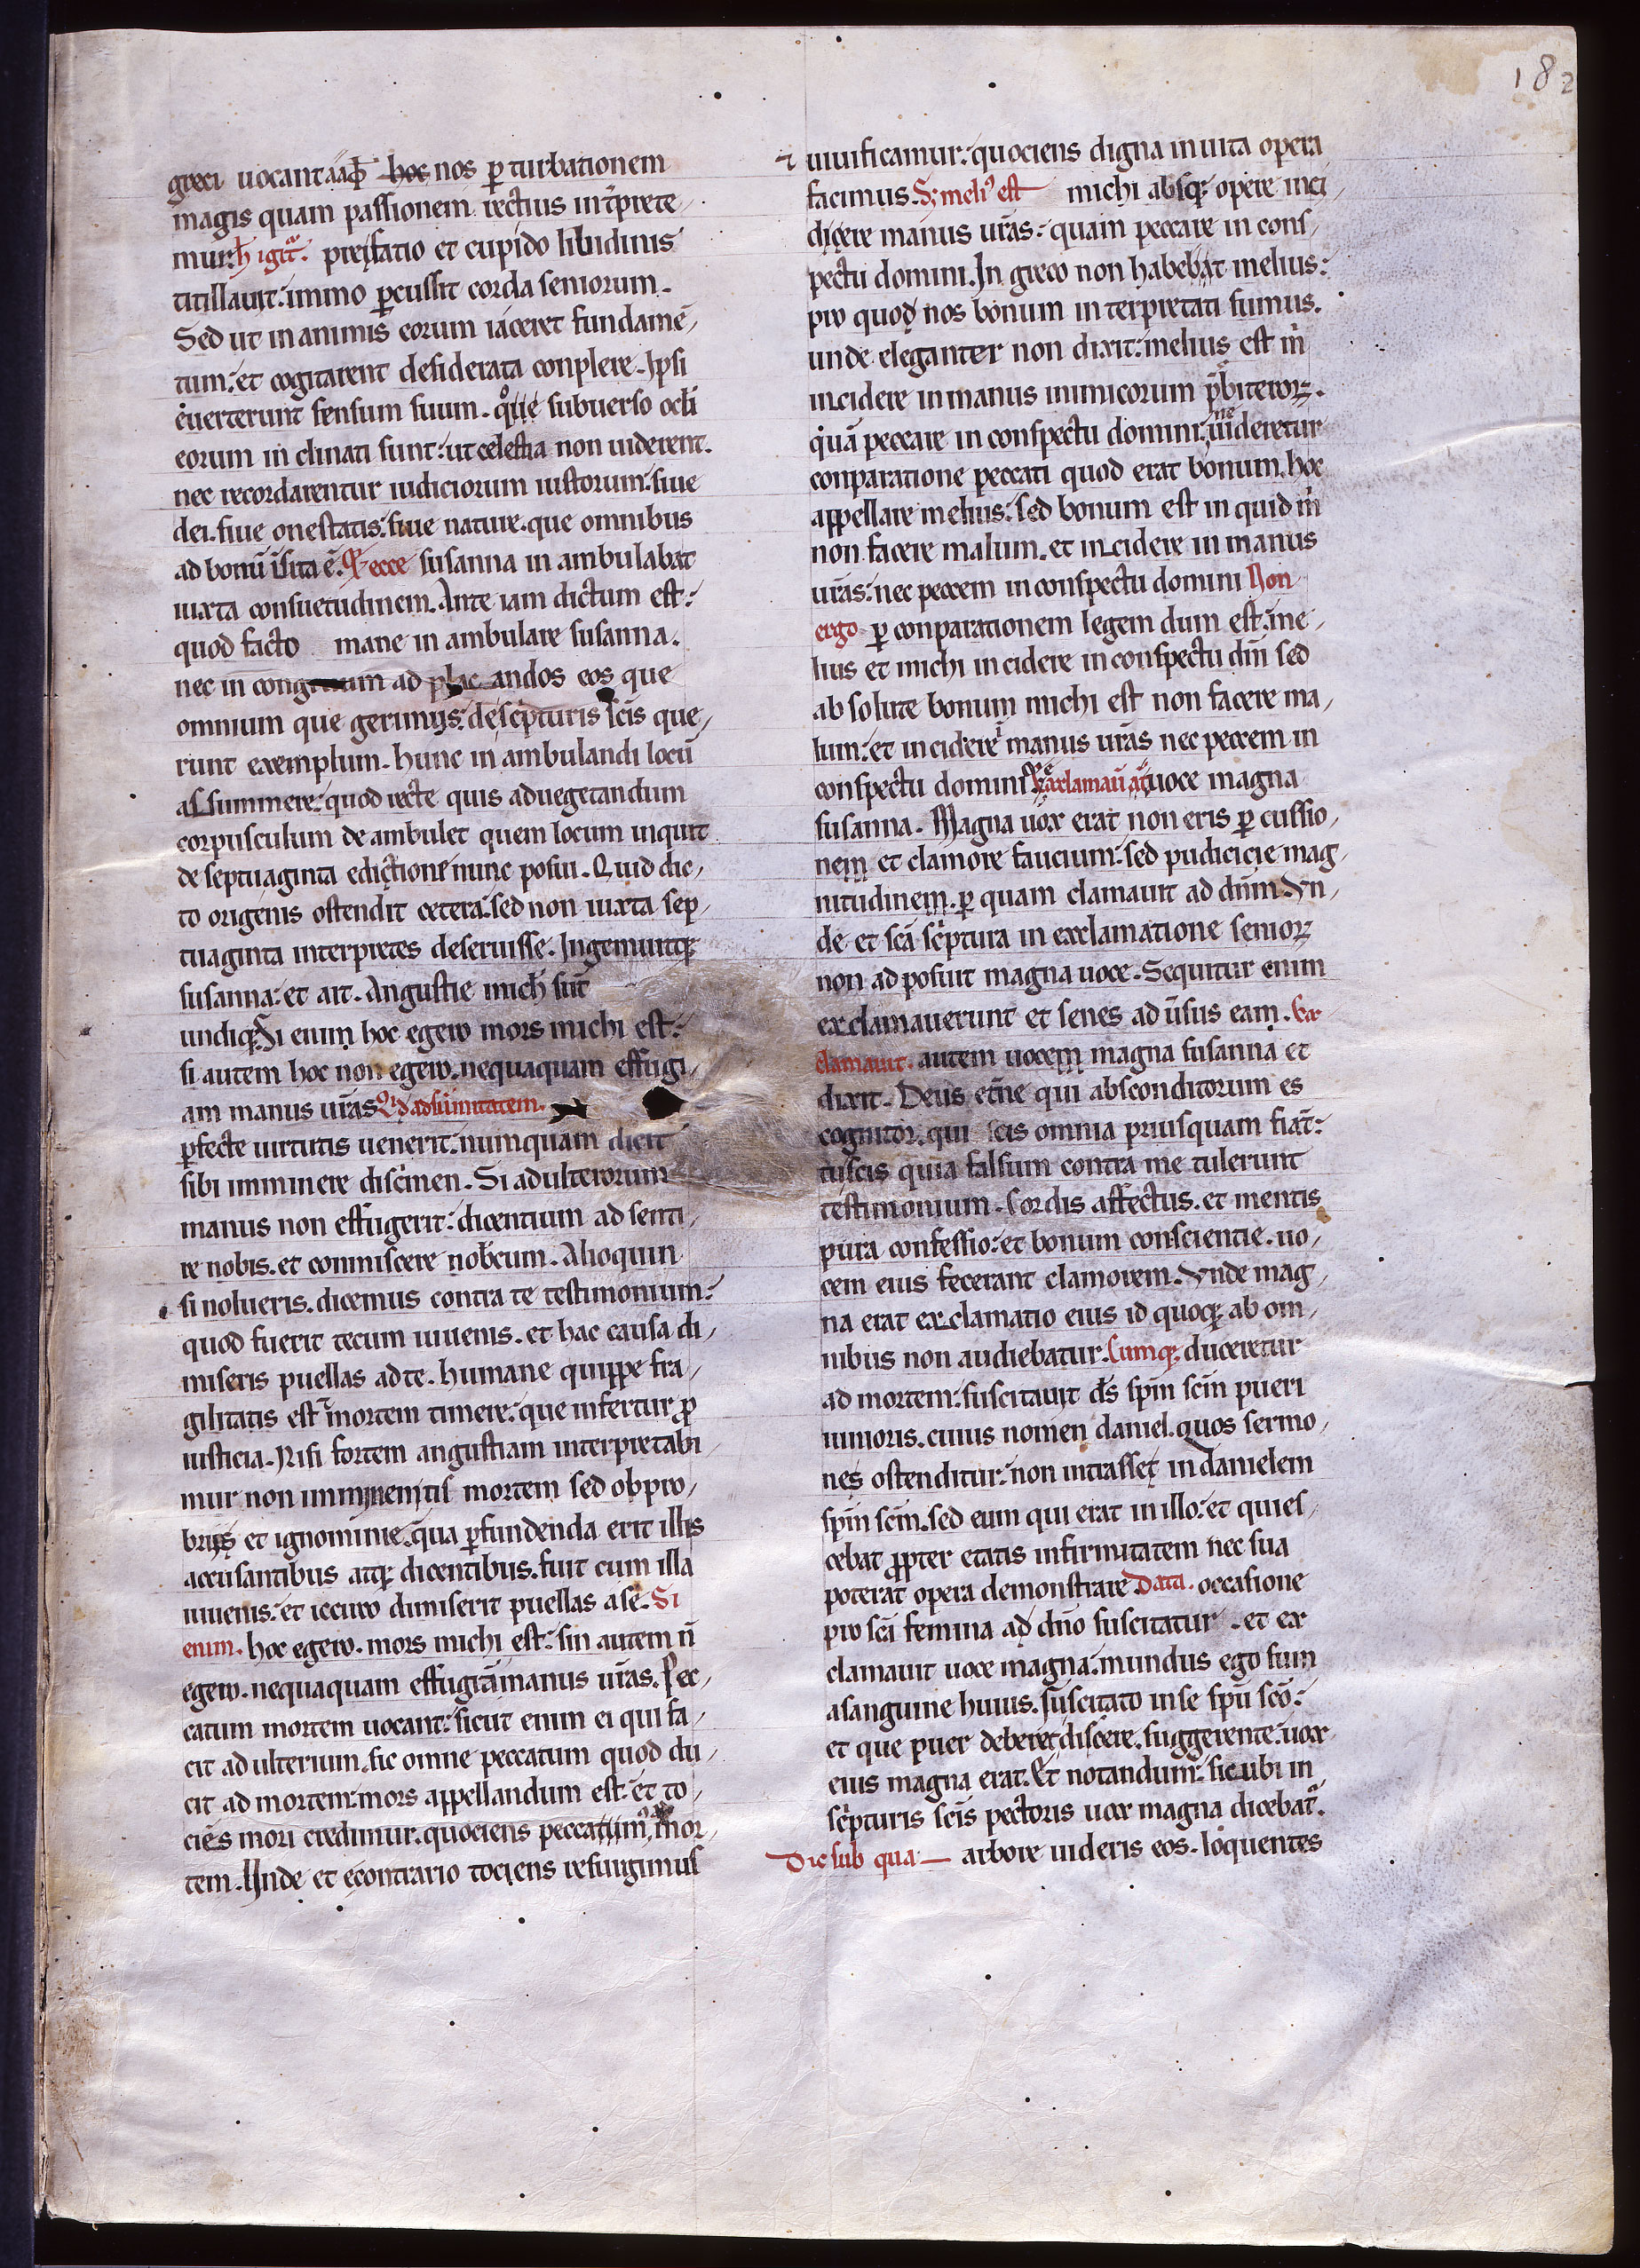 182
greci uocant hoc nos ꝑ turbationem
magis quam passionem rectius int̉prete
mur. h igit̉. prefatio et cupido libidinis
titillauit: immo ꝑcussit corda seniorum.
Sed ut in animis eorum iaceret fundamē
tum: et cogitarent desiderata conplere. Ipsi
euerterunt sensum suum. quoque subuerso ocl̉i
eorum in clinati sunt: ut celestia non uiderent.
nec recordarentur iudiciorum iustorum: siue
dei. siue onestatis: siue nature. que omnibus
ad bonū īsita ē. Et ecce susanna in ambulabat
iuxta consuetudinem. Ante iam dictum est:
quod facto mane in ambulare susanna.
nec in ad andos eos que
omnium que gerimus: de scripturis sc̄is que
runt exemplum. hunc in ambulandi locū
assummere: quod recte quis ad uegetandum
corpusculum de ambulet quem locum inquit
de septuaginta edictione nunc posui. Quid dic
to origenis ostendit cetera: sed non iuxta sep
tuaginta interpretes deseruisse. Ingemuitq;
susanna: et ait. Angustie mich̉ sūt
undiq;. Si enim hoc egero mors michi est:
si autem hoc non egero. nequaquam effugi
am manus ur̄as. Qi ad summitatem.
ꝑfecte uirtutis uenerit: numquam dicit
sibi imminere discrimen. Si adulterorum
manus non effugerit: dicentium ad senti
re nobis. et commiscere nobiscum. Alioquin
si nolueris. dicemus contra te testimonium:
quod fuerit tecum iuuenis. et hac causa di
miseris puellas ad te. humane quippe fra
gilitatis est mortem timere: que infertur ꝓ
iusticia. Nisi fortem angustiam interpretabi
mur non imminentis mortem sed obpro
briis et ignominie. qua ꝑfundenda erit illis
accusantibus atq; dicentibus. fuit cum illa
iuuenis: et iccirco dimiserit puellas a se. Si
enim. hoc egero. mors michi est: sin autem n̄
egero. nequaquam effugiā manus ur̄as. Pec
catum mortem uocant: sicut enim ei qui fa
cit ad ulterium. sic omne peccatum quod du
cit ad mortem: mors appellandum est: et to
ciēs mori credimur. quociens peccatum, mor
tem. Unde et econtrario tociens resurgimus
⁊ uiuificamur: quociens digna in uita opera
facimus. Sꝫ meliꝰ est michi absq; opere inci
dicere manus ur̄as: quam peccare in cons
pectu domini. In greco non habebat melius:
pro quod nos bonum interpretati sumus.
unde eleganter non dixit: melius est m̄
incidere in manus inimicorum pr̄biteroꝝ.
quā peccare in conspectu domini: ne uideretur
conparatione peccati quod erat bonum. hoc
appellare melius: sed bonum est in quid m̄
non facere malum. et incidere in manus
ur̄as: nec peccem in conspectu domini Non
ergo ꝑ conparationem legem dum est: me
lius et michi incidere in conspectu dn̄i sed
ab solute bonum michi est non facere ma
lum: et incidere manus ur̄as nec peccem in
conspectu domini exclamauit aūt uoce magna
susanna. Magna uox erat non eris ꝑ cussio
nem et clamore faucium: sed pudicicie mag
nitudinem. ꝑ quam clamauit ad dn̄m. Vn
de et sc̄a scriptura in exclamatione senioꝝ
non ad posuit magna uoce. Sequitur enim
exclamauerunt et senes ad ūsus eam. Ex
clamauit. autem uocem magna susanna et
dixit. Deus et̄ne qui absconditorum es
cognitor. qui scis omnia priusquam fiāt:
tu scis quia falsum contra me tulerunt
testimonium. Cordis affectus. et mentis
pura confessio: et bonum conscientie. uo
cem eius fecerant clamorem. Vnde mag
na erat exclamatio eius id quoq; ab om
nibus non audiebatur. Cumq; duceretur
ad mortem: suscitauit dꝰs sp̄m sc̄m pueri
iunioris. cuius nomen daniel. quos sermo
nes ostenditur: non intrasset in danielem
sp̄m sc̄m. sed eum qui erat in illo: et quies
cebat ꝓpter etatis infirmitatem nec sua
poterat opera demonstrare Data. occasione
pro sc̄i femina ad dn̄o suscitatur. et ex
clamauit uoce magna: mundus ego sum
a sanguine huius. suscitato in se sp̄u sc̄o:
et que puer deberet discere. suggerente. uox
eius magna erat. Et notandum: sicubi in
scripturis sc̄is pectoris uox magna dicebat̉.
Dic sub qua arbore uideris eos. loquentes